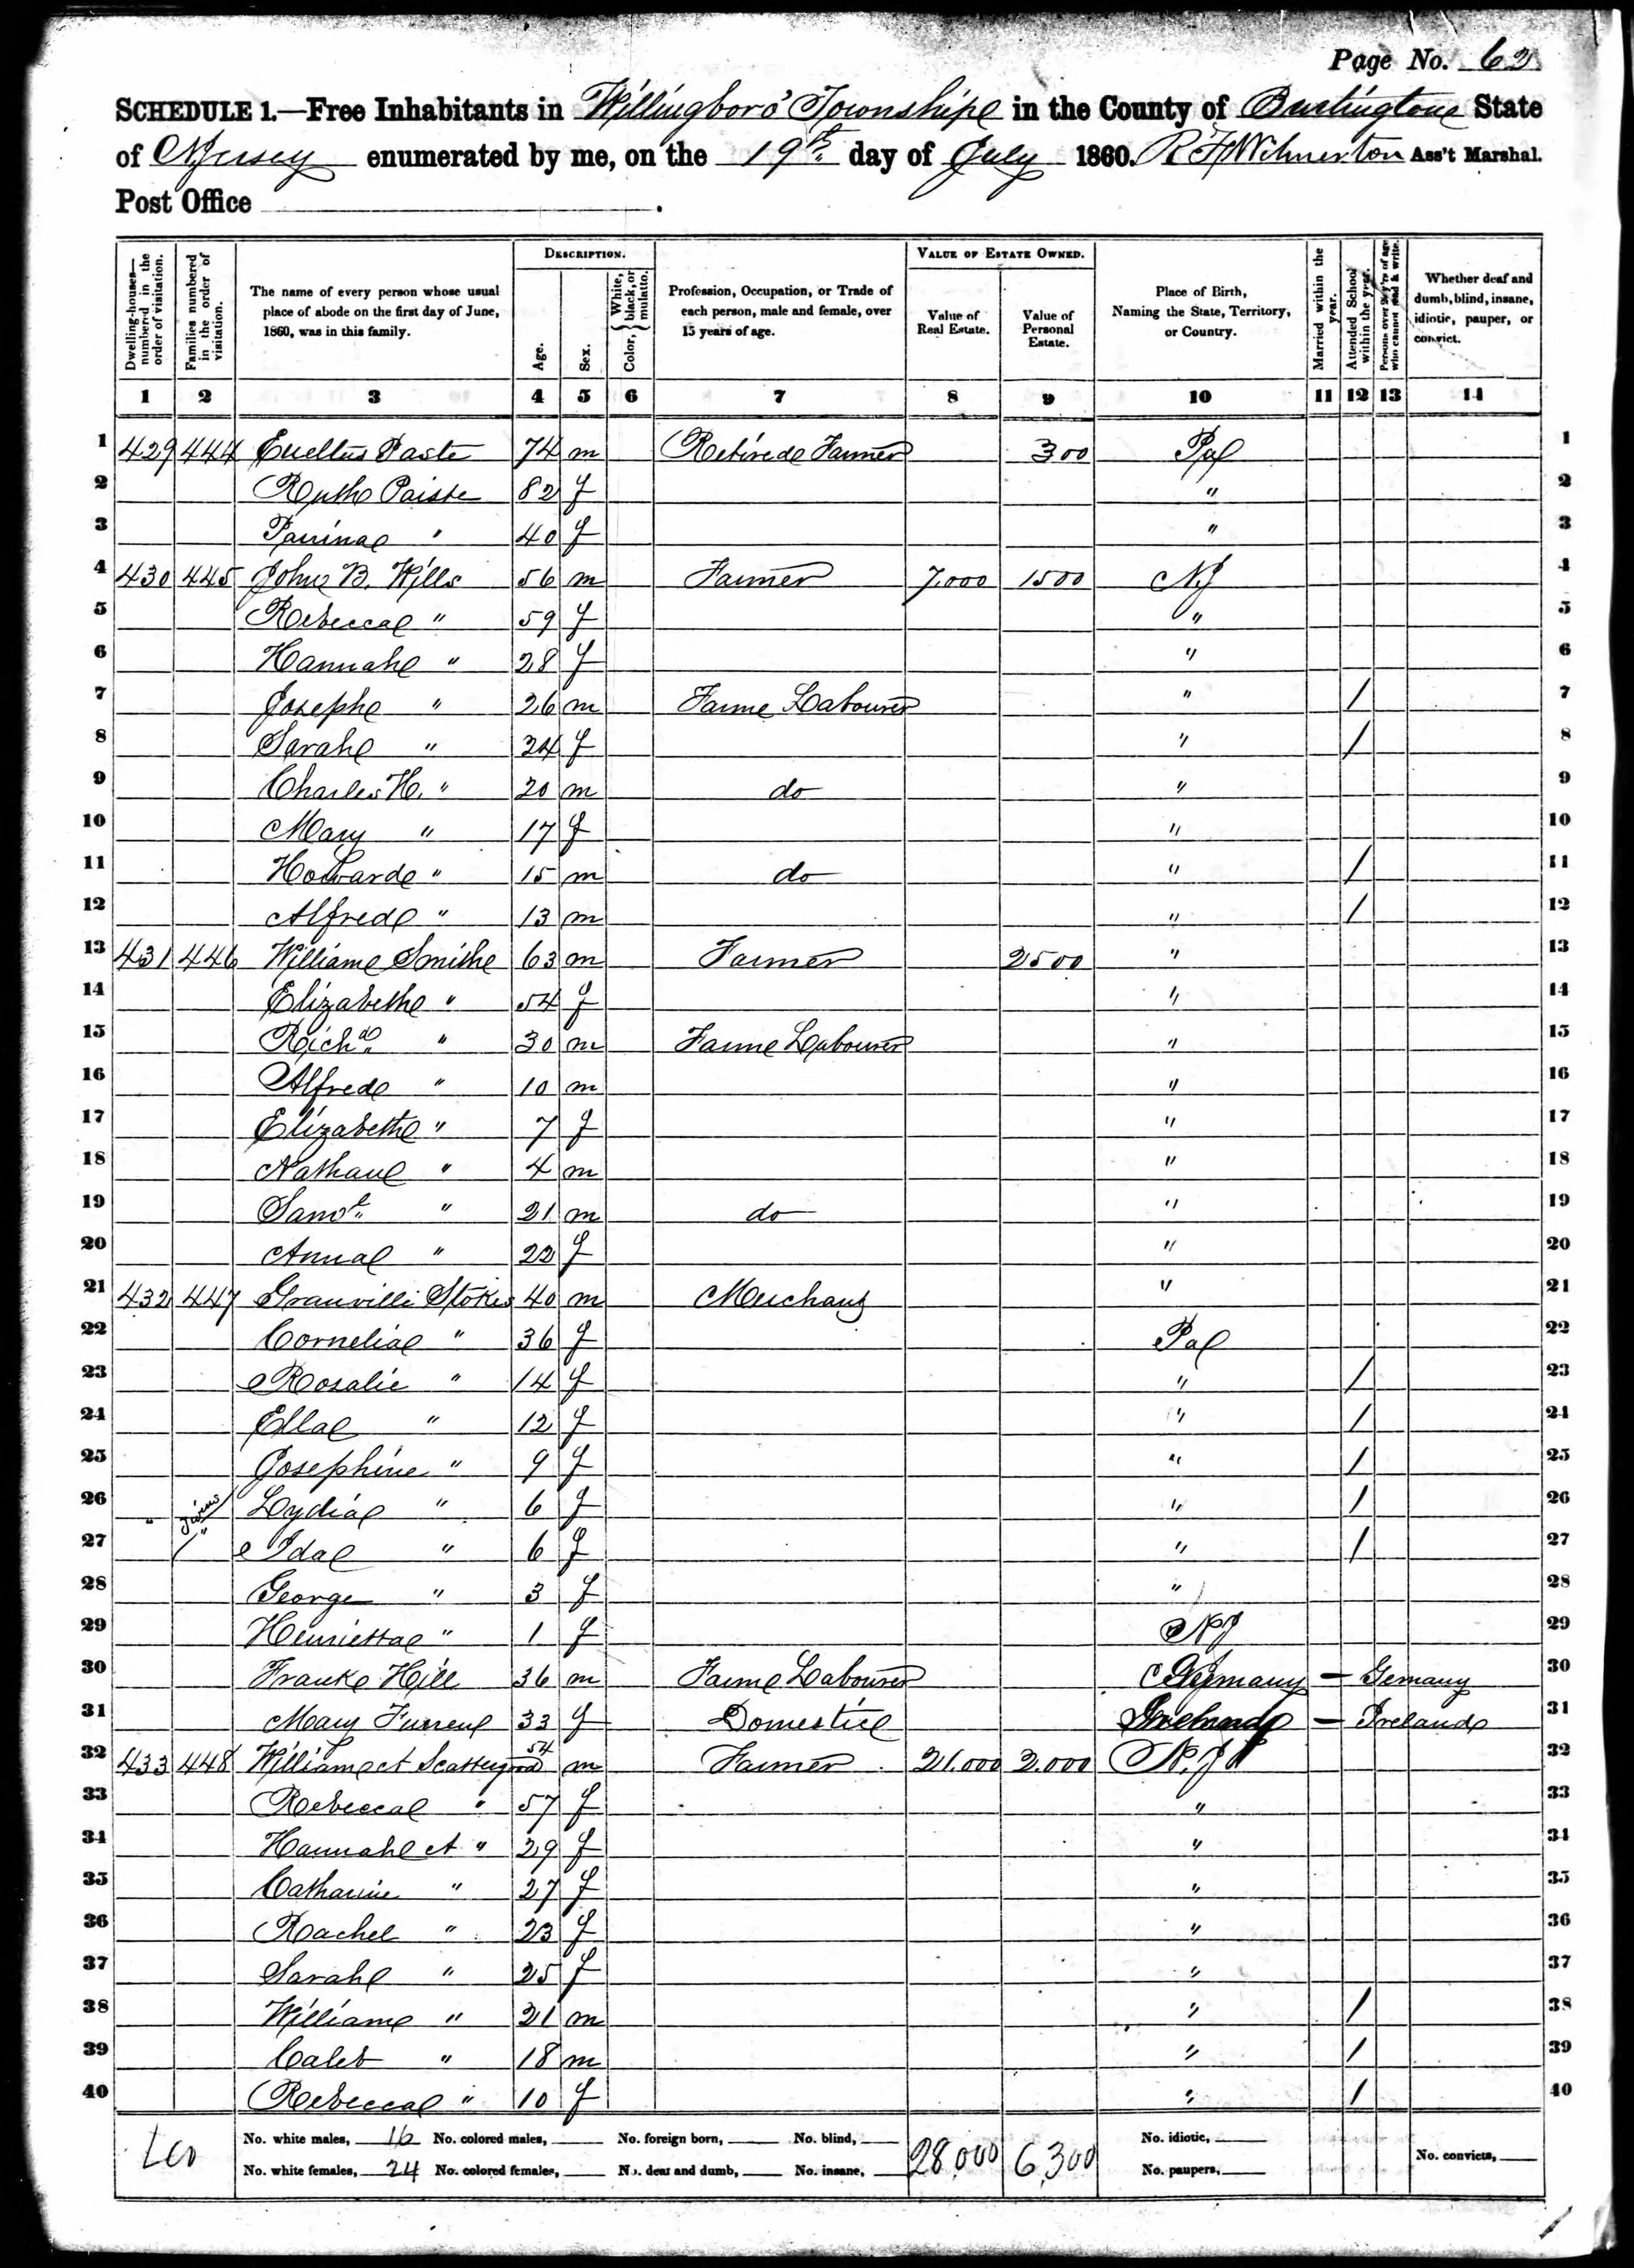 Page No. 62
SCHEDULE 1.—Free Inhabitants in Willingboro' Township in the County of Burlington State
of NJersey enumerated by me, on the 19th day of July 1860. R F Wilmerton Ass't Marshal.
Post Office
Dwelling-houses—numbered in the order of visitation. Families numbered in the order of visitation. The name of every person whose usual place of abode on the first day of June, 1860, was in this family. DESCRIPTION. Age. Sex. Color, White, black, or mulatto. Profession, Occupation, or Trade of each person, male and female, over 15 years of age. VALUE OF ESTATE OWNED. Value of Real Estate. Value of Personal Estate. Place of Birth, Naming the State, Territory, or Country. Married within the year. Attended School within the year. Persons over 20 y'rs of age who cannot read & write. Whether deaf and dumb, blind, insane, idiotic, pauper, or convict.
1 2 3 4 5 6 7 8 9 10 11 12 13 14
1 429 444 Paste 74 m Retired Farmer 300 Pa 1
2 Ruth Paiste 82 f " 2
3 " 40 f " 3
4 430 445 John B. Wills 56 m Farmer 7.000 1500 NJ 4
5 Rebecca " 59 f " 5
6 Hannah " 28 f " 6
7 Joseph " 26 m Farm Labourer " / 7
8 Sarah " 24 f " / 8
9 Charles H. " 20 m do " 9
10 Mary " 17 f " 10
11 Howard " 15 m do " / 11
12 Alfred " 13 m " / 12
13 431 446 William Smith 63 m Farmer 2500 " 13
14 Elizabeth " 54 f " 14
15 Richd " 30 m Farm Labourer " 15
16 Alfred " 10 m " 16
17 Elizabeth " 7 f " 17
18 Nathan " 4 m " 18
19 Saml " 21 m do " 19
20 Anna " 22 f " 20
21 432 447 Granville Stokes 40 m Merchant " 21
22 Cornelia " 36 f Pa 22
23 Rosalie " 14 f " / 23
24 Ella " 12 f " / 24
25 Josephine " 9 f " / 25
26 " Twins Lydia " 6 f " / 26
27 " Ida " 6 f " / 27
28 George " 3 f " 28
29 Henrietta " 1 f NJ 29
30 Frank Hill 36 m Farm Labourer Germany — Germany 30
31 Mary 33 f Domestic Ireland — Ireland 31
32 433 448 William A Scattergood 54 m Farmer 21.000 2.000 N.J 32
33 Rebecca " 57 f " 33
34 Hannah A " 29 f " 34
35 Catharine " 27 f " 35
36 Rachel " 23 f " 36
37 Sarah " 25 f " 37
38 William " 21 m " / 38
39 Caleb " 18 m " / 39
40 Rebecca " 10 f " / 40
No. white males, 16 No. colored males, No. foreign born, No. blind, 28,000 6,300 No. idiotic,
No. white females, 24 No. colored females, No. deaf and dumb, No. insane, No. paupers, No. convicts,